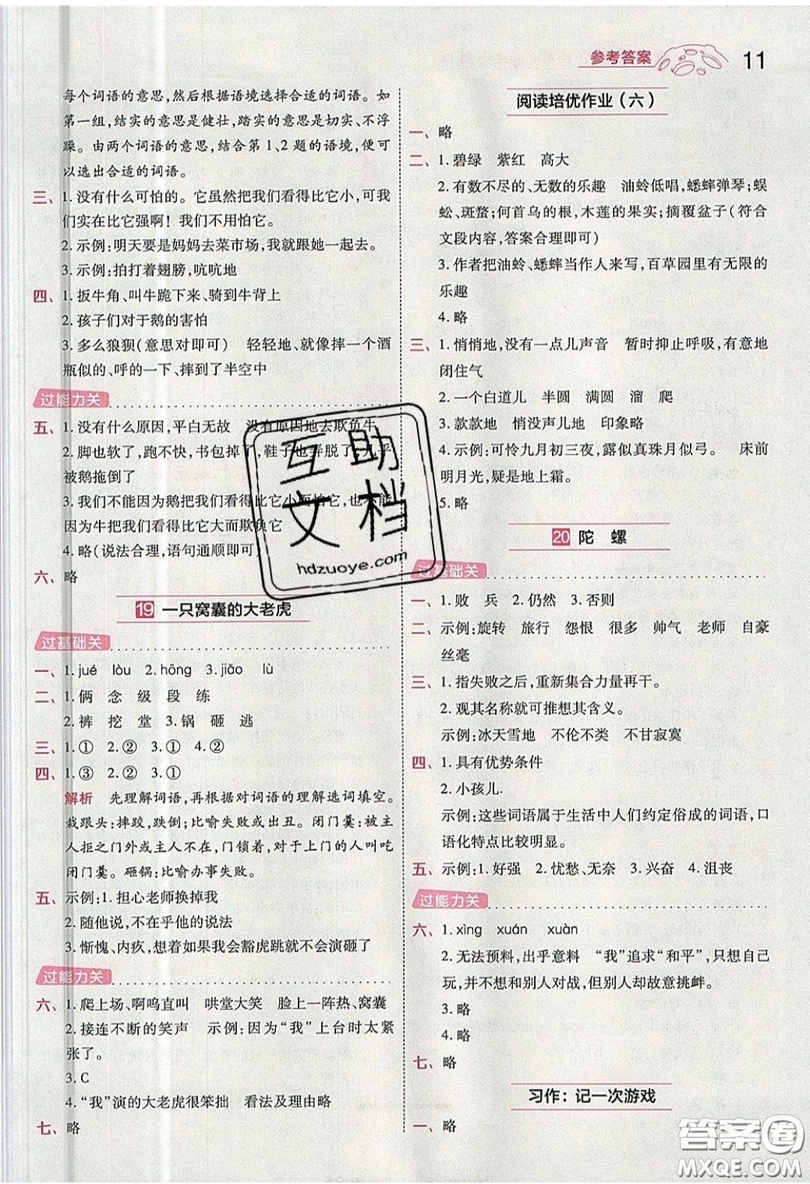 参考答案
11
每个词语的意思,然后根据语境选择合适的词语。如
第一组,结实的意思是健壮,踏实的意思是切实、不浮
躁。由两个词语的意思,结合第1、2题的语境,便可
以选出合适的词语。
三、1.没有什么可怕的。它虽然把我们看得比它小,可我
们实在比它强啊!我们不用怕它。
2.示例:明天要是妈妈去菜市场,我就跟她一起去。
3.示例:拍打着翅膀,吭吭地
四、1.扳牛角、叫牛跪下来、骑到牛背上
2.孩子们对于鹅的害怕
3.多么狼狈(意思对即可) 轻轻地、就像摔一个酒
瓶似的、呼的一下、摔到了半空中
过能力关
五、1.没有什么原因,平白无故 没有原因地去欺负牛
2.脚也软了,跑不快,书包掉了,鞋子也弄脱了,几乎
被鹅拖倒了
3.我们不能因为鹅把我们看得比它小而怕它,也不能
因为牛把我们看得比它大而欺负它
4.略(说法合理,语句通顺即可)
六、略
19 一只窝囊的大老虎
过基础关
一、1.jué lòu 2.hōng 3.jiǎo lù
二、1.俩 念 级 段 练
2.裤 挖 堂 3.锅 砸 逃
三、1.① 2.② 3.① 4.②
四、1.③ 2.② 3.①
解析 先理解词语,再根据对词语的理解选词填空。
栽跟头:摔跤,跌倒;比喻失败或出丑。闭门羹:被主
人拒之门外或主人不在,门锁着,对于上门的人叫吃
闭门羹。砸锅:比喻办事失败。
五、示例:1.担心老师换掉我
2.随他说,不在乎他的说法
3.惭愧、内疚,想着如果我会豁虎跳就不会演砸了
过能力关
六、1.爬上场、啊呜直叫 哄堂大笑 脸上一阵热、窝囊
2.接连不断的笑声 示例:因为“我”上台时太紧
张了。
3.C
4.“我”演的大老虎很笨拙 看法及理由略
七、略
阅读培优作业(六)
一、略
二、1.碧绿 紫红 高大
2.有数不尽的、无数的乐趣 油蛉低唱,蟋蟀弹琴;蜈
蚣、斑蝥;何首乌的根,木莲的果实;摘覆盆子(符合
文段内容,答案合理即可)
3.作者把油蛉、蟋蟀当作人来写,百草园里有无限的
乐趣
4.略
三、1.悄悄地,没有一点儿声音 暂时抑止呼吸,有意地
闭住气
2.一个白道儿 半圆 满圆 溜 爬
3.款款地 悄没声儿地 印象略
4.示例:可怜九月初三夜,露似真珠月似弓。 床前
明月光,疑是地上霜。
5.略
20 陀 螺
过基础关
一、1.败 兵 2.仍然 3.否则
二、示例:旋转 旅行 怨恨 很多 帅气 老师 自豪
丝毫
三、1.指失败之后,重新集合力量再干。
2.观其名称就可推想其含义。
示例:冰天雪地 不伦不类 不甘寂寞
四、1.具有优势条件
2.小孩儿.
示例:这些词语属于生活中人们约定俗成的词语,口
语化特点比较明显。
五、示例:1.好强 2.忧愁、无奈 3.兴奋 4.沮丧
过能力关
六、1.xìng xuán xuàn
2.无法预料,出乎意料 “我”追求“和平”,只想自己
玩,并不想和别人对战,但别人却故意挑衅。
3.略
4.略
七、略
习作:记一次游戏
一、略
互助
文档
hdzuoye.com
答案圈
MXQE.COM